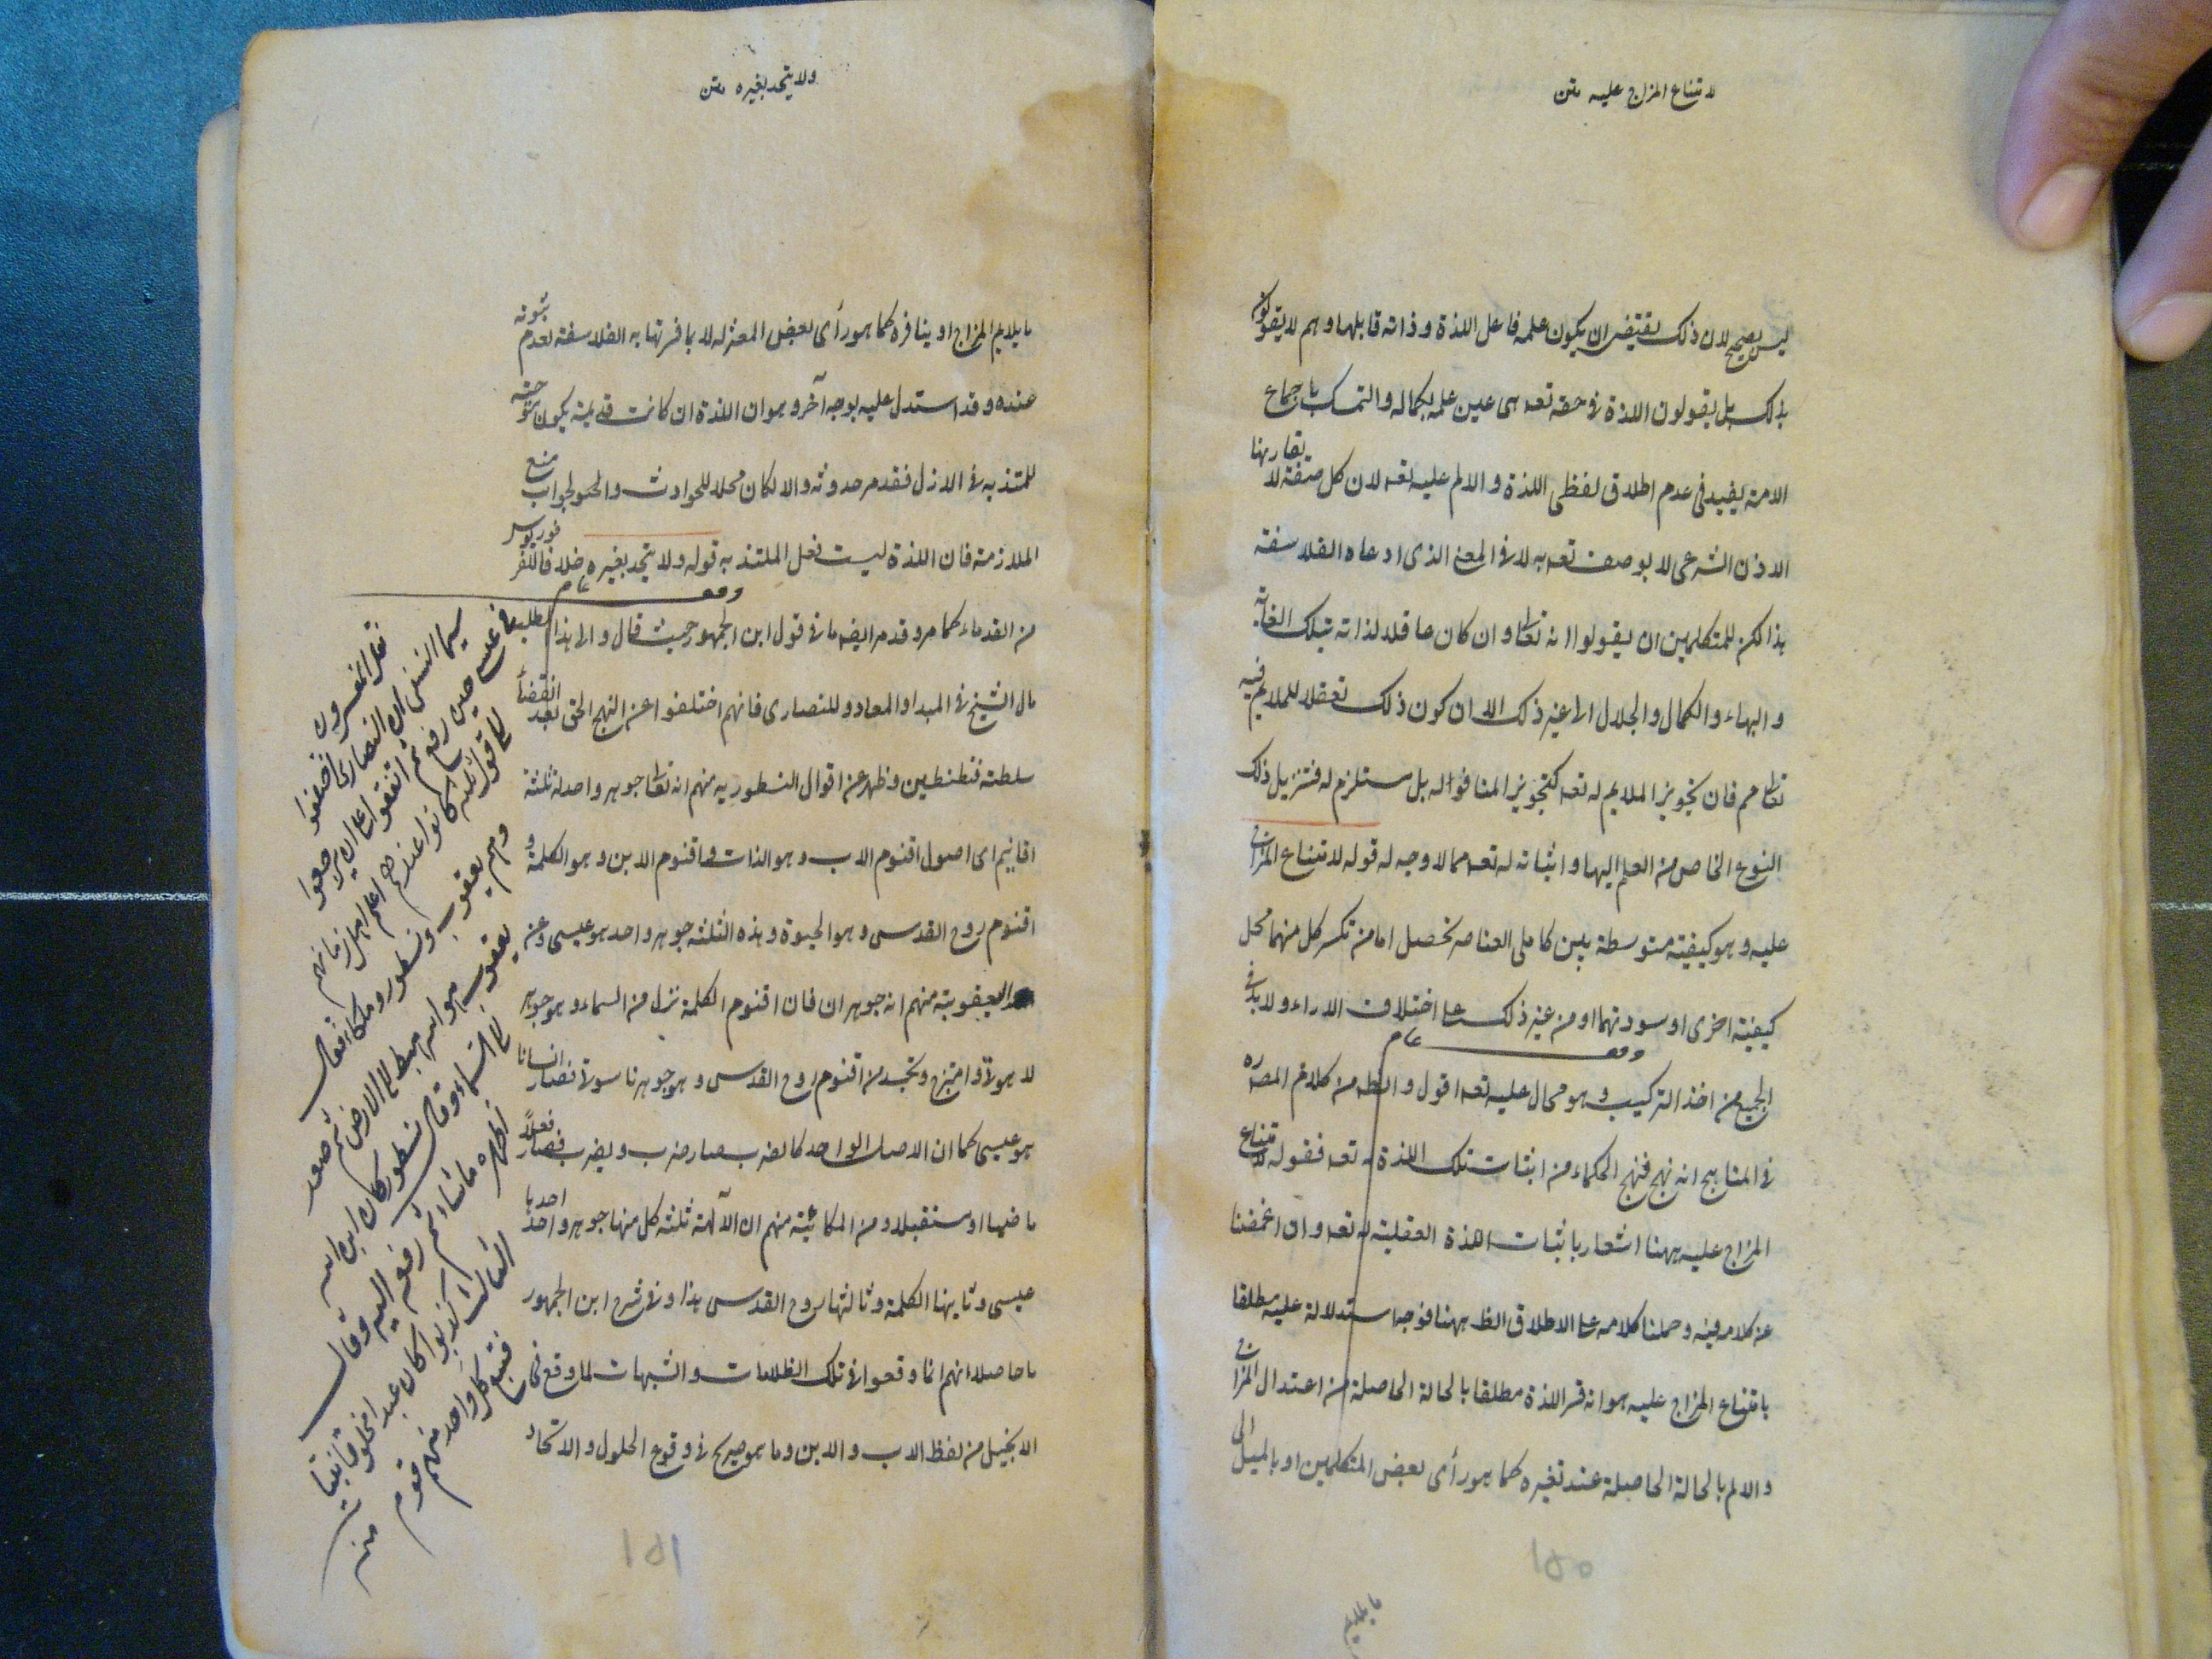 لامتناع المزاج عليه متن
ليس بصحيح لان ذلك يقتضى ان يكون علمه فاعل اللذة و ذاته قابلها و هم لا يقولون
بذلك بل يقولون اللذة فى حقه تعه هى عين علمه بكماله والتمسك باجماع
الامة يفيد فى عدم اطلاق لفظى اللذة و الالم عليه تعه لان كل صفة لا يقارنها
الاذن الشرعى لا يوصف تعه به لا فى المعنى الذى ادعاه الفلاسفة
هذا لكن للمتكلمين ان يقولوا انه تعالى و ان كان عاقلا لذاته بتلك الغاية
و البهاء و الكمال و الجلال الى غير ذلك الا ان كون ذلك تعقلا للملايم فيه
تعالى مم فان تجويز الملايم له تعه كتجويز المنافى له بل مستلزم له فتنزيل ذلك
النوع الخاص من العلم اليها و اثباته له تعه مما لا وجه له قوله لامتناع المزاج
عليه و هو كيفية متوسطة بين كاملى العناصر تحصل اما من تكسر كل منهما محل
كيفية اخرى او سورتهما او من غير ذلك على اختلاف الاراء و لا بد فى
الجميع من اخذ التركيب و هو محال عليه تعه اقول و الظ من كلام المصره
فى المناهج انه نهج فنهج الحكماء من اثبات تلك اللذة له تعه فقوله لامتناع
المزاج عليه ههنا اشعار باثبات اللذة العقلية له تعه و ان اغمضنا
عن كلامه فيه و حملنا كلامه على الاطلاق الظ ههنا فوجه استدلاله عليه مطلقا
بامتناع المزاج عليه هو انه فسر اللذة مطلقا بالحالة الحاصلة من اعتدال المزاج
و الالم بالحالة الحاصلة عند تغيره كما هو رأى بعض المتكلمين او بالميل الى
١٥٠
ما يلايم
ولا يتحد بغيره متن
ما يلايم المزاج او ينافره كما هو رأى بعض المعتزله لا بما فسرتها به الفلاسفة لعدم ثبوته
عنده و قد استدل عليه بوجه آخر و هو ان اللذة ان كانت قديمة يكون
للمتذبه فى الازل فقد مر حدوثه و الا لكان محلا للحوادث و الجواب منع
الملازمة فان اللذة ليست فعل الملتذ به قوله ولا يتحد بغيره خلافا لفرفوريوس
من القدماء كما مر و قد مر ايضا ما فى قول ابن الجمهور حيث قال و الى هذا المطلب
مال الشيخ فى المبدا و المعاد و للنصارى فانهم اختلفوا عن النهج الحق بعد انقضاء
سلطنة قسطنطين و ظهر عن اقوال النسطوريه منهم انه تعالى جوهر واحد له ثلثة
اقانيم اى اصول اقنوم الاب و هو الذات و اقنوم الابن و هو الكلمة و
اقنوم روح القدس و هو الحيوة و هذه الثلثه جوهر واحد هو عيسى و عن
اليعقوبية منهم انه جوهران فان اقنوم الكلمة نزل من السماء و هو جوهر
لاهوتى و امتزج و تجسد من اقنوم روح القدس و هو جوهر ناسوتى فصار انسانا
هو عيسى كما ان الاصل الواحد كالضرب صار ضرب و يضرب فصار فعلا
ماضيا او مستقبلا و من الملكائية منهم ان الآلهة ثلثة كل منها جوهر واحد احدها
عيسى و ثانيها الكلمة و ثالثها روح القدس هذا و فى شرح ابن الجمهور
ما حاصله انهم انما وقعوا فى تلك الظلمات و الشبهات لما وقع فى
الانجيل من لفظ الاب و الابن و ما هو صريح فى وقوع الحلول و الاتحاد
١٥١
نقل المفسرون
سيما النسفى ان النصارى اختلفوا
فى عيسى حين رفع ثم اتفقوا على ان يرجعوا
الى قول ثلثه كانوا عندهم اعلم اهل زمانهم
و هم يعقوب و نسطور و ملكا فقال
يعقوب هو الله هبط الى الارض ثم صعد
الى السماء و قال نسطور كان ابن الله
اظهره ما شاء ثم رفعه اليه و قال
الثالث كذبوا كان عبدا مخلوقا نبيا
فتبع كل واحد منهم قوم
منه